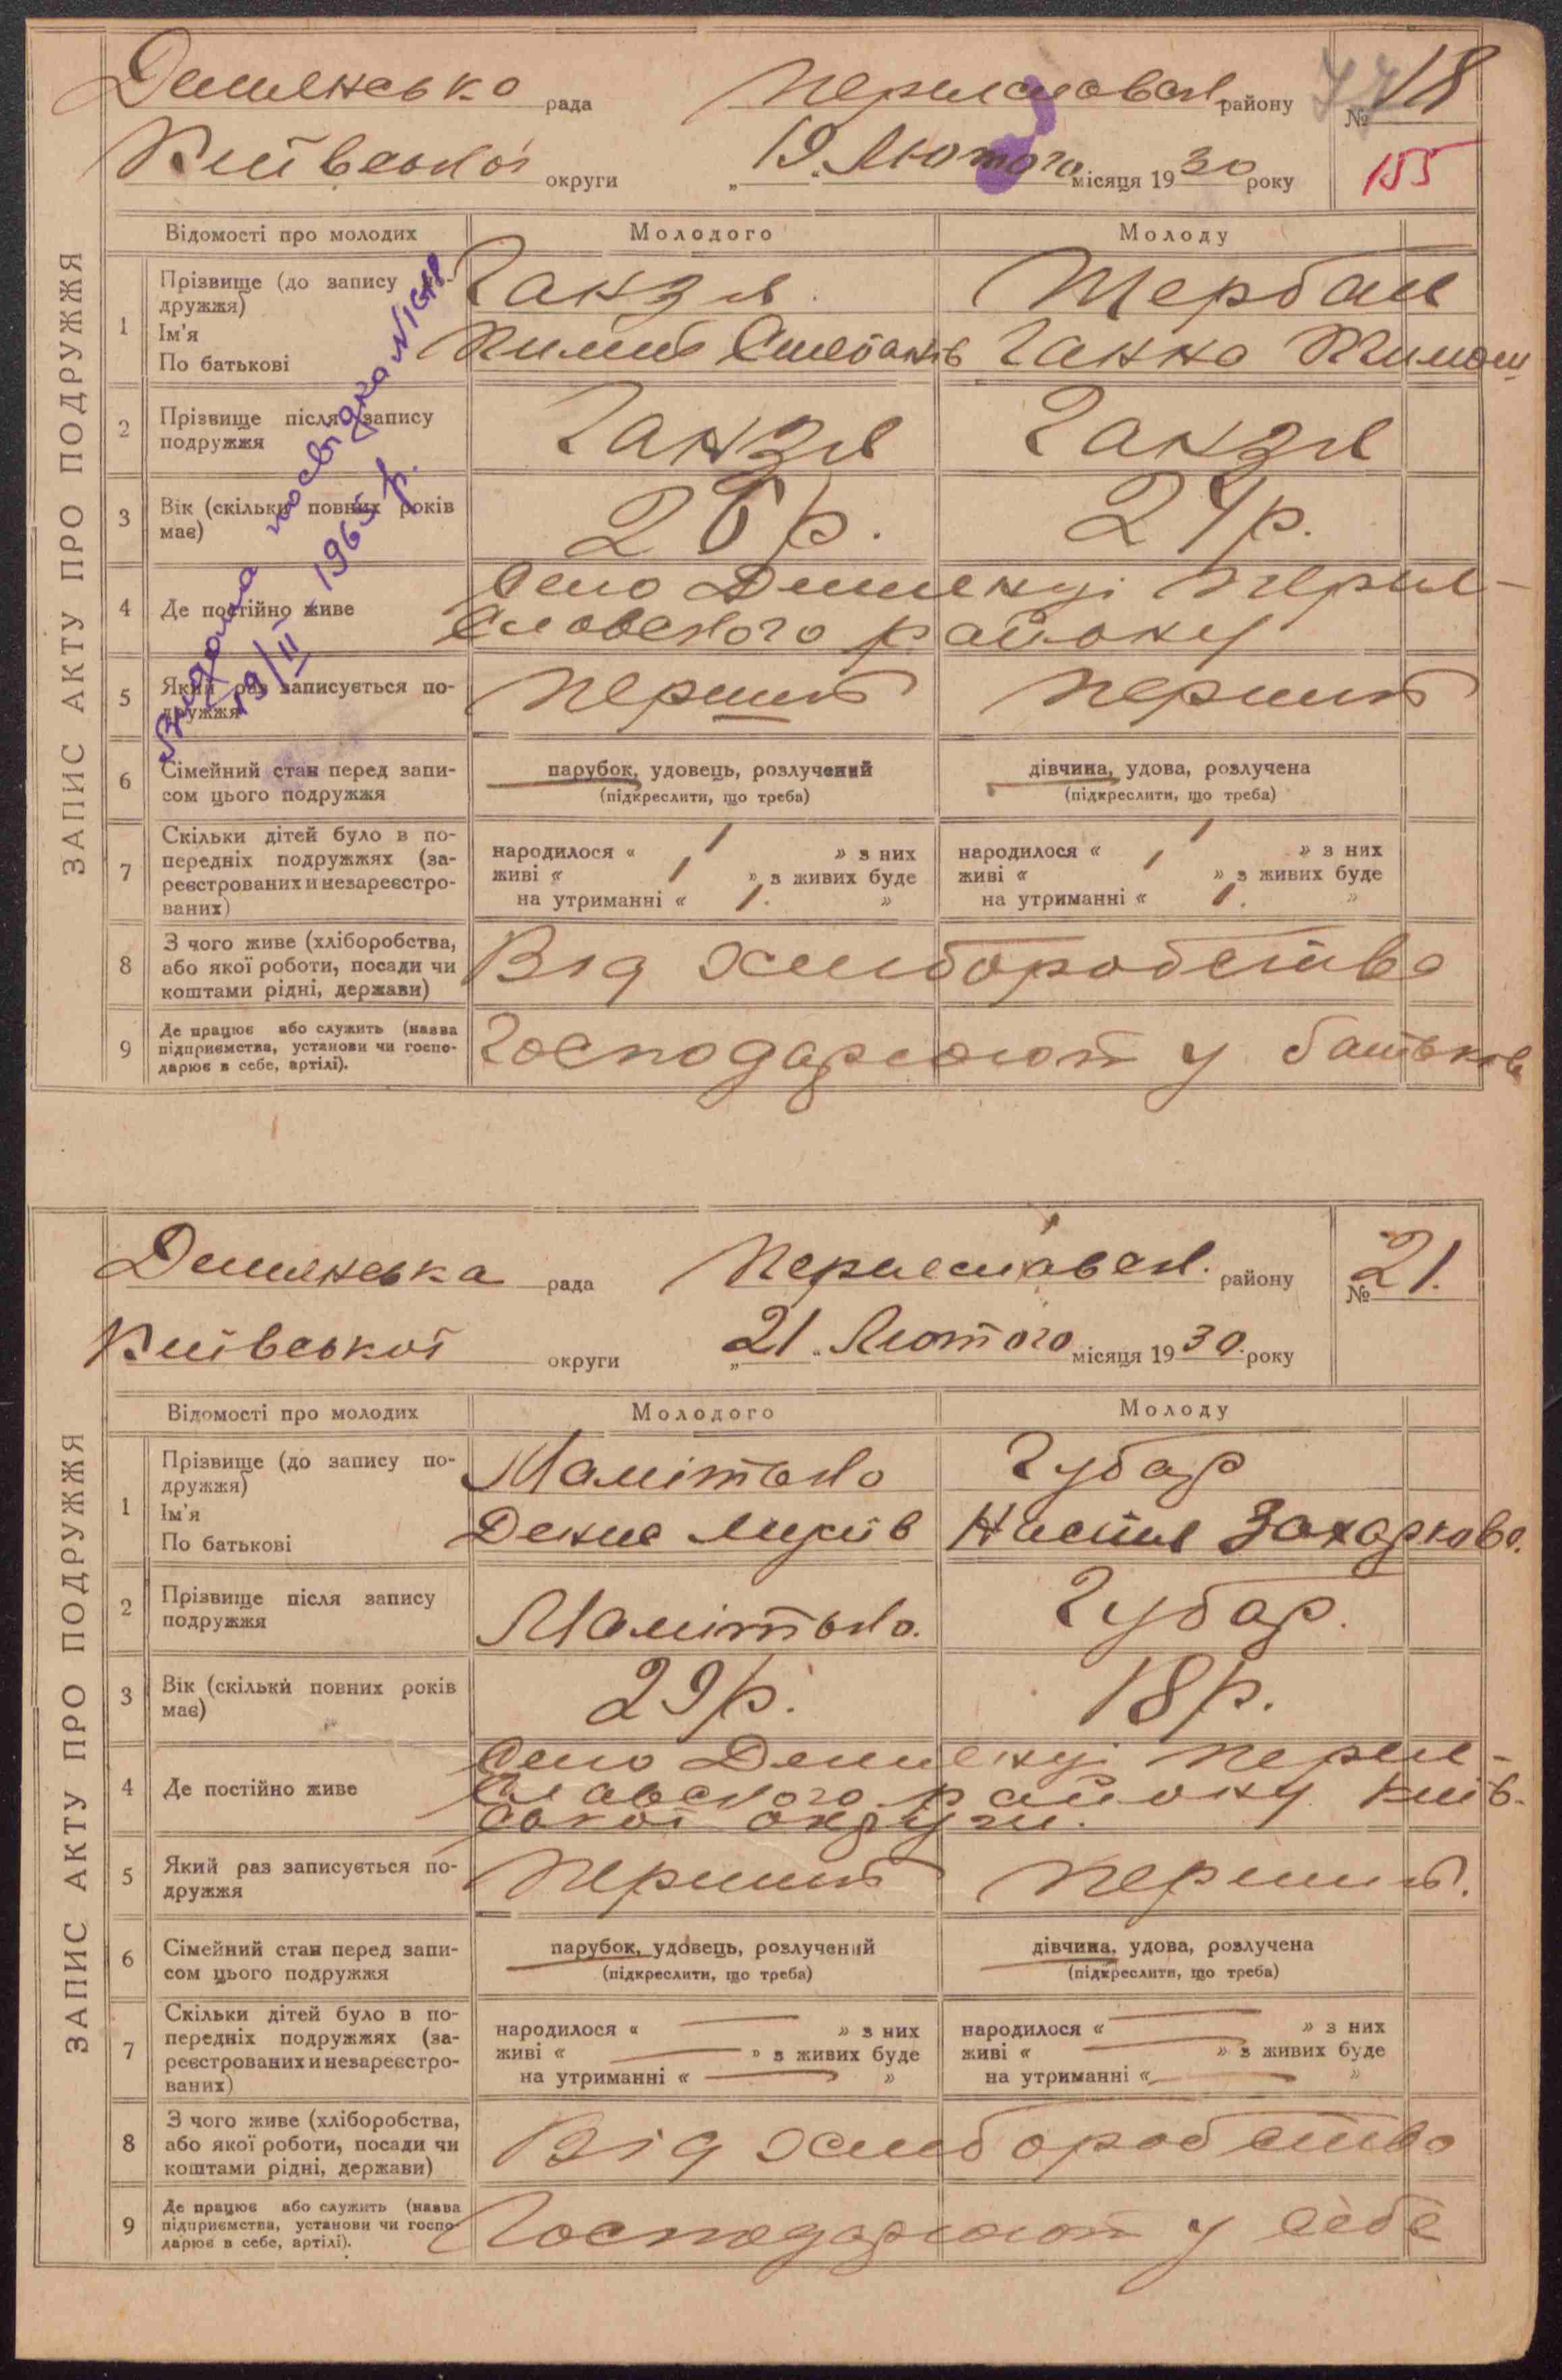 Демянсько рада Переяславськ. району № 18
Київської округи „19“ Лютого місяця 1930 року 155
ЗАПИС АКТУ ПРО ПОДРУЖЖЯ
Відомості про молодих Молодого Молоду
1 Прізвище (до запису по-
дружжя) Ганзя Щербак
Ім'я
По батькові Ганна
2 Прізвище після запису
подружжя Ганзя Ганзя
3 Вік (скільки повних років
має) 26 р. 24 р.
4 Де постійно живе Село Демянці Перея-
славського району
5 Який раз записується по-
дружжя Перший Перший
6 Сімейний стан перед запи-
сом цього подружжя
парубок, удовець, розлучений
(підкреслити, що треба)
дівчина, удова, розлучена
(підкреслити, що треба)
7 Скільки дітей було в по-
передніх подружжях (за-
реєстрованих и незареєстро-
ваних)
народилося « » з них
живі « » з живих буде
на утриманні « »
народилося « » з них
живі « » з живих буде
на утриманні « »
8 З чого живе (хліборобства,
або якої роботи, посади чи
коштами рідні, держави) Від хліборобства
9 Де працює або служить (назва
підприємства, установи чи госпо-
дарює в себе, артілі). Господарюют у батьков
Видана посвідка
19/II 1965 р.
Демянська рада Переяславськ. району № 21.
Київської округи „21“ Лютого місяця 1930. року
ЗАПИС АКТУ ПРО ПОДРУЖЖЯ
Відомості про молодих Молодого Молоду
1 Прізвище (до запису по-
дружжя) Губар
Ім'я
По батькові Настя Захаркова.
2 Прізвище після запису
подружжя Губар.
3 Вік (скільки повних років
має) 29 р. 18 р.
4 Де постійно живе Село Демянці Перея-
славського району Київ-
ської округи.
5 Який раз записується по-
дружжя Перший Перший.
6 Сімейний стан перед запи-
сом цього подружжя
парубок, удовець, розлучений
(підкреслити, що треба)
дівчина, удова, розлучена
(підкреслити, що треба)
7 Скільки дітей було в по-
передніх подружжях (за-
реєстрованих и незареєстро-
ваних)
народилося « — » з них
живі « — » з живих буде
на утриманні « — »
народилося « — » з них
живі « — » з живих буде
на утриманні « — »
8 З чого живе (хліборобства,
або якої роботи, посади чи
коштами рідні, держави) Від хліборобства
9 Де працює або служить (назва
підприємства, установи чи госпо-
дарює в себе, артілі). Господарюют у себе